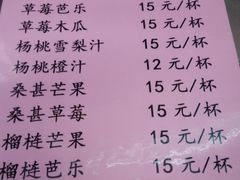 草莓芭乐 15 元/杯
草莓木瓜 15 元/杯
杨桃雪梨汁 15 元/杯
杨桃橙汁 12 元/杯
桑甚芒果 15 元/杯
桑甚草莓 15 元/杯
榴梿芒果 15 元/杯
榴梿芭乐 15 元/杯